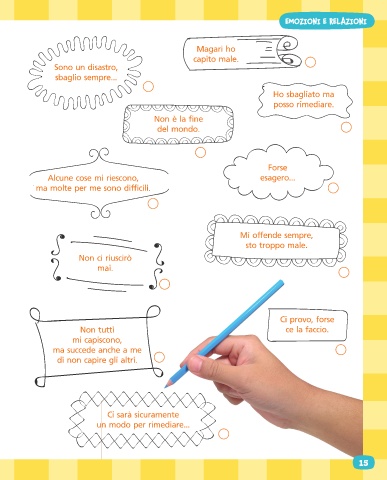 EMOZIONI E RELAZIONI
Sono un disastro,
sbaglio sempre...
Magari ho
capito male.
Ho sbagliato ma
posso rimediare.
Non è la fine
del mondo.
Alcune cose mi riescono,
ma molte per me sono difficili.
Forse
esagero...
Mi offende sempre,
sto troppo male.
Non ci riuscirò
mai.
Ci provo, forse
ce la faccio.
Non tutti
mi capiscono,
ma succede anche a me
di non capire gli altri.
Ci sarà sicuramente
un modo per rimediare...
15